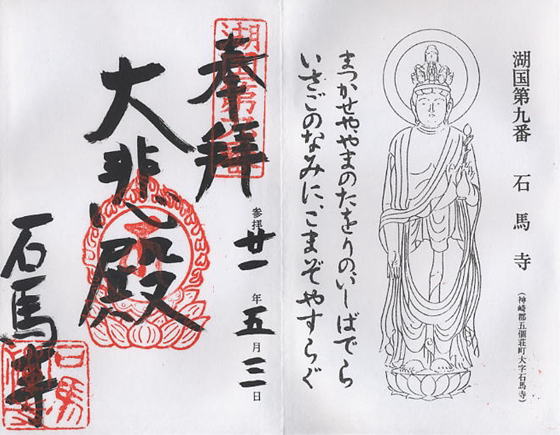 湖国第九番　石馬寺
(神崎郡五個荘町大字石馬寺)
まつかせややまのたをりのいしばでら
いさごのなみに、こまぞやすらぐ
奉拝
参拝 廿一年五月三日
大悲殿
石馬寺